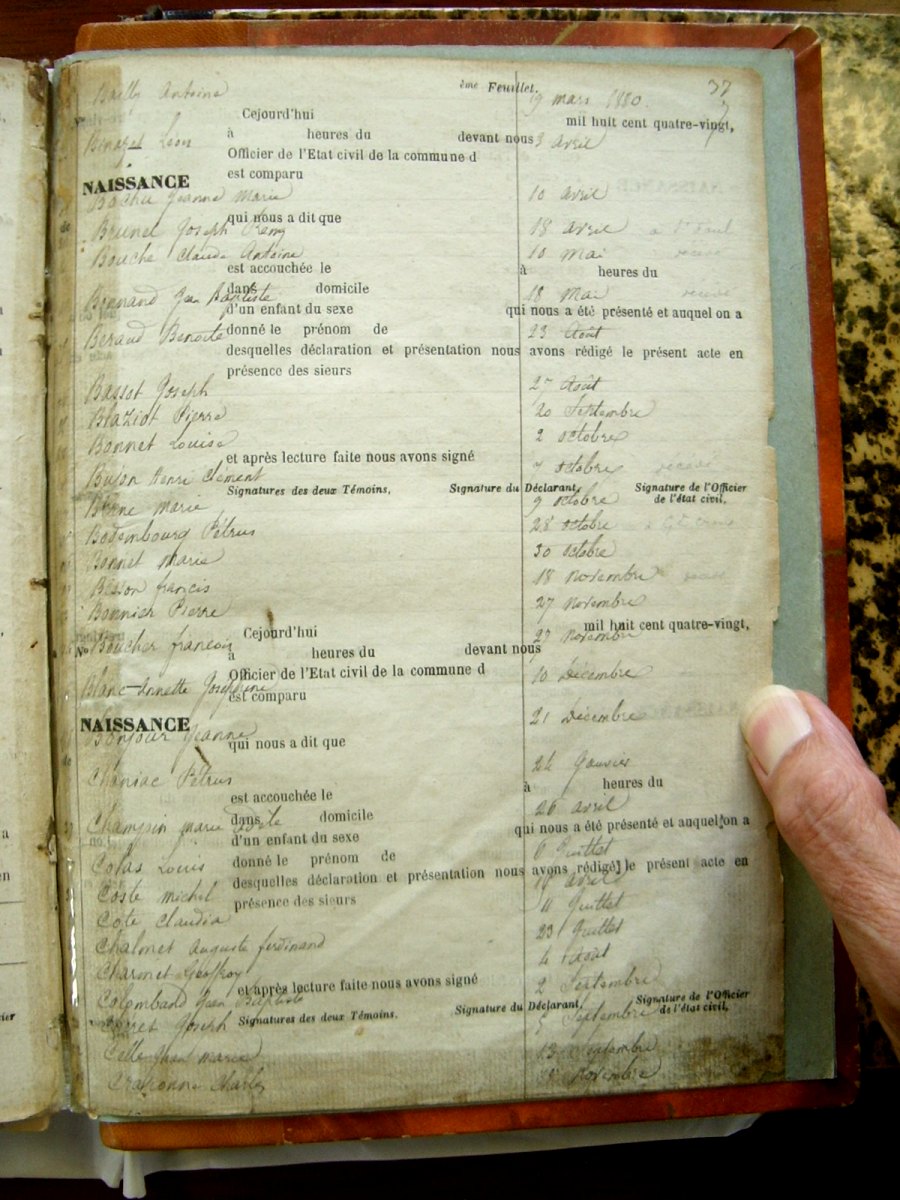 Bailly Antoine ème Feuillet. 19 mars 1880. 37
Cejourd'hui mil huit cent quatre-vingt,
à heures du devant nous
Léon 3 avril
Officier de l'Etat civil de la commune d
est comparu
NAISSANCE
Jeanne Marie 10 avril
qui nous a dit que
Brunet Joseph Remy 18 avril à St Paul
Bouche Claude Antoine 10 Mai
est accouchée le à heures du
dans domicile
Jean Baptiste 18 Mai
d'un enfant du sexe qui nous a été présenté et auquel on a
Beraud Benoite 23 Août
donné le prénom de
desquelles déclaration et présentation nous avons rédigé le présent acte en
présence des sieurs
Bassot Joseph 27 Août
Blaziot Pierre 20 Septembre
Bonnet Louise 2 octobre
et après lecture faite nous avons signé
Buson Henri Clément 7 octobre
Signatures des deux Témoins, Signature du Déclarant, Signature de l'Officier
de l'état civil,
marie 9 octobre
Bodembourg Pétrus 28 octobre
Bonnet marie 30 octobre
Besson francis 18 novembre
Bonnier Pierre 27 novembre
Cejourd'hui mil huit cent quatre-vingt,
No Boucher françois 27 novembre
à heures du devant nous
Officier de l'Etat civil de la commune d
Blanc Annette Joséphine 10 Décembre
est comparu
NAISSANCE
Bonjour Jeanne 21 Décembre
qui nous a dit que
Chaniac Pétrus 24 Janvier
est accouchée le à heures du
dans domicile
Champin marie 26 avril
d'un enfant du sexe qui nous a été présenté et auquel on a
Colas Louis 6 Juillet
donné le prénom de
desquelles déclaration et présentation nous avons rédigé le présent acte en
Coste michel avril
présence des sieurs
Cote Claudia 11 Juillet
Chalonet Auguste ferdinand 23 Juillet
Charmet Geoffroy 4 Août
et après lecture faite nous avons signé
Colomband Jean Baptiste 2 Septembre
Signatures des deux Témoins. Signature du Déclarant, Signature de l'Officier
de l'état civil,
Joseph 5 Septembre
Jean marie 13 Septembre
Charles novembre